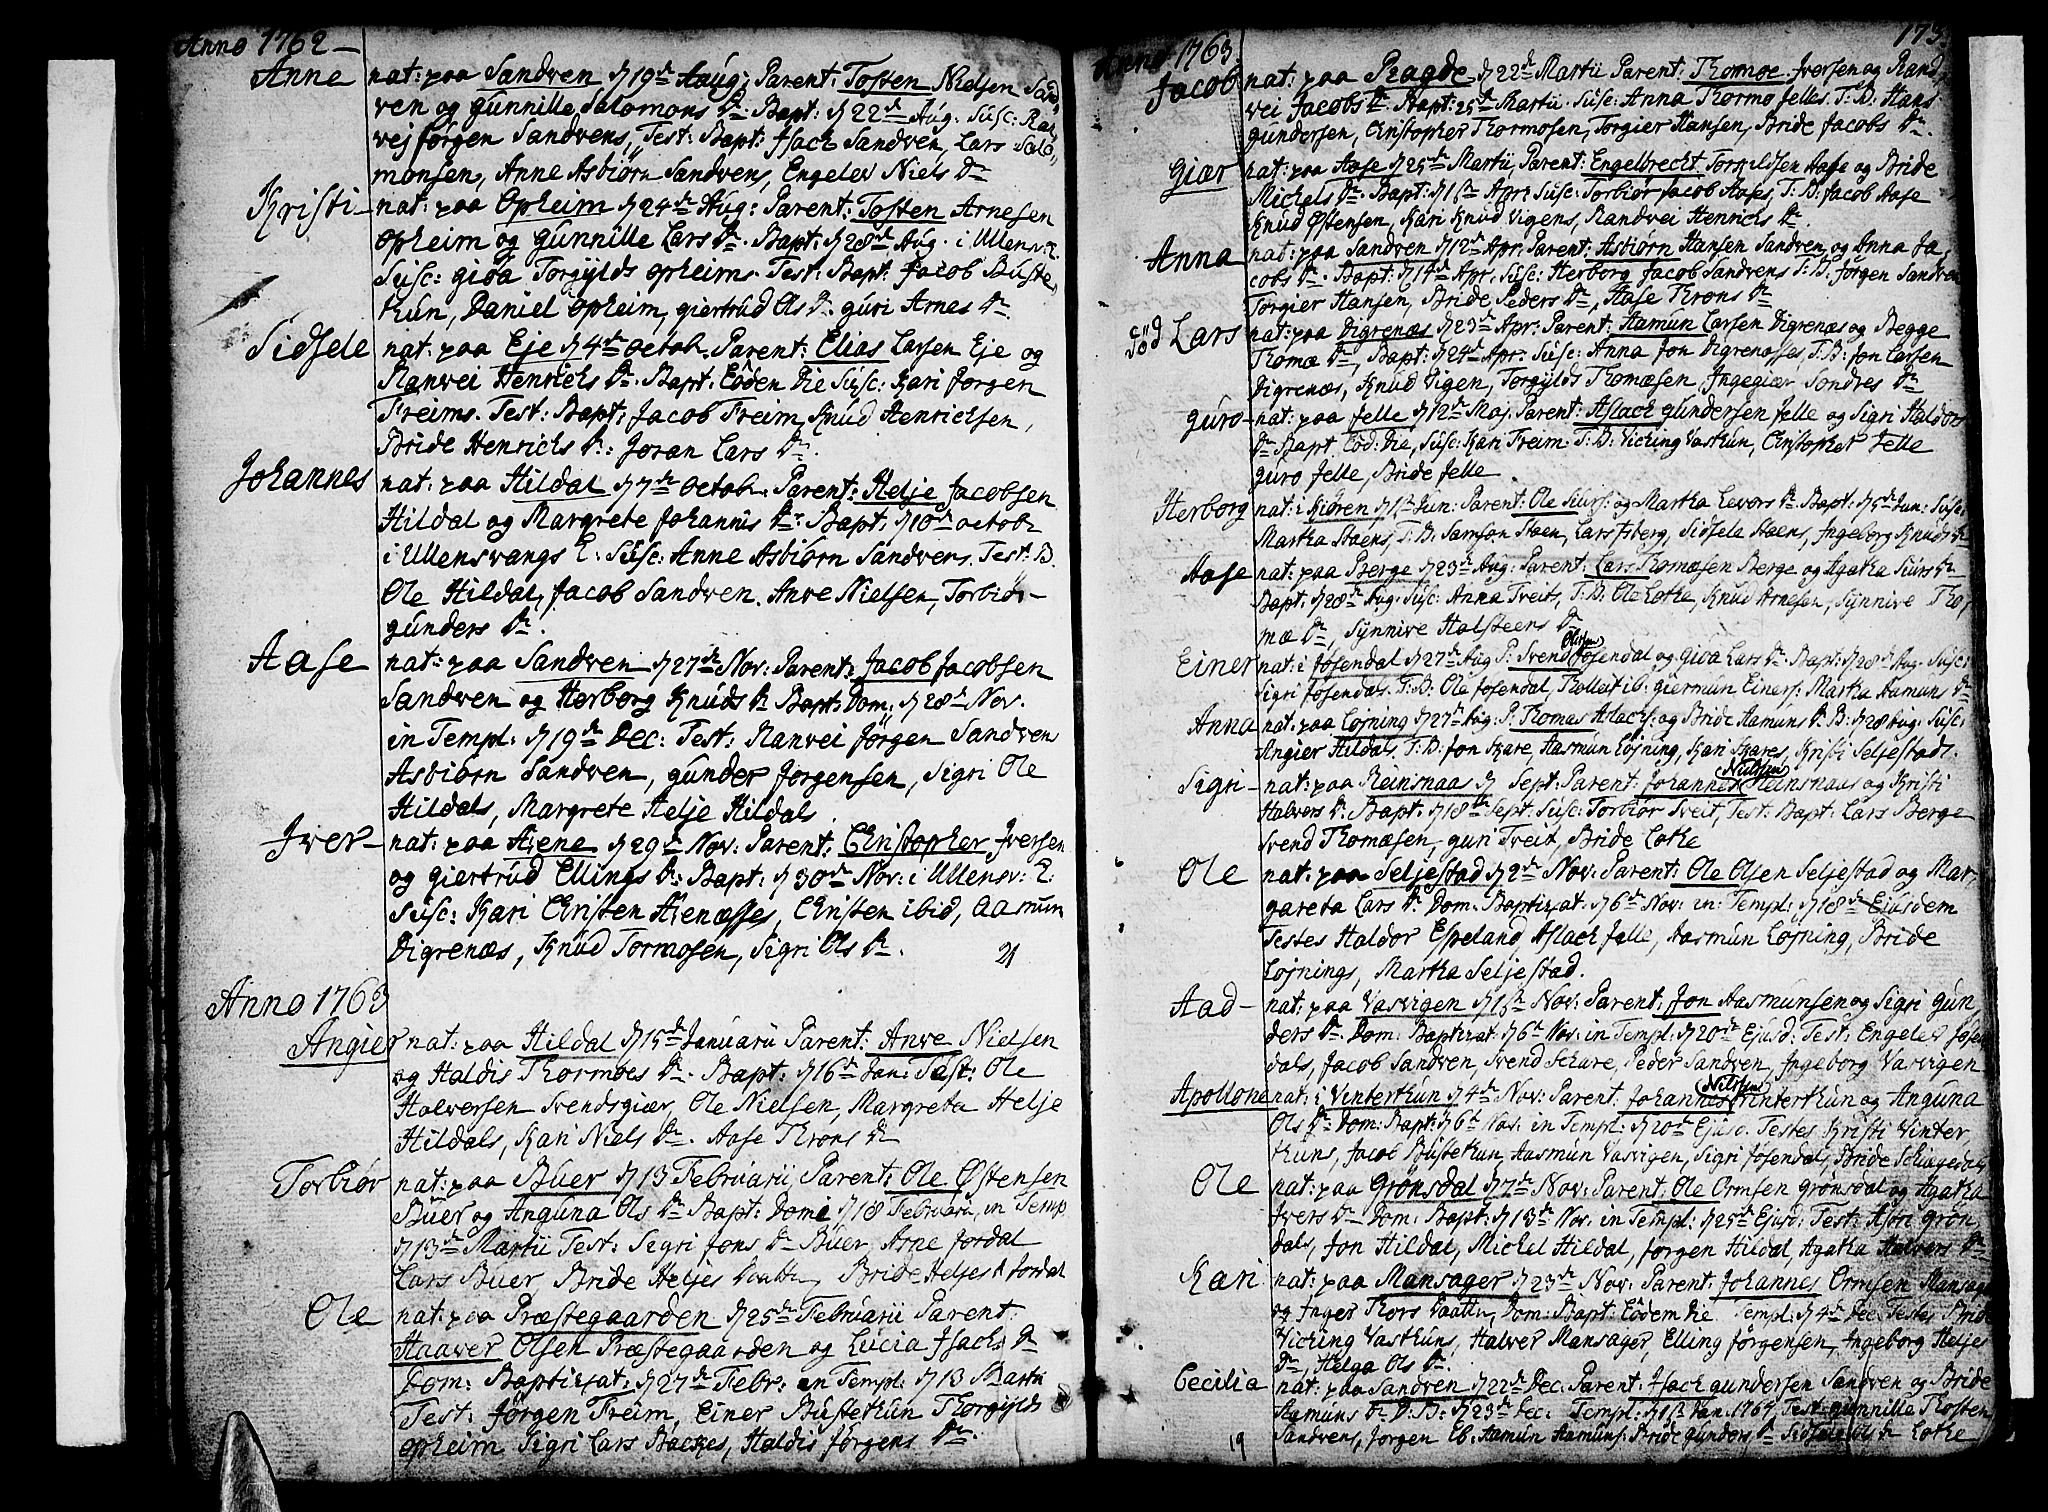 Anno 1762
Anne nat: paa Sandven d 19de Aug; Parent: Tosten Nielsen Sand„
ven og Gunnille Salomons Dr. Bapt: d 22de Aug: Susc: Ran„
vej Jørgen Sandvens, Test: Bapt: Isach Sandven, Lars Salo„
monsen, Anne Asbiørn Sandvens, Engelev Niels Dr
Kristi nat: paa Opheim d 24de Aug: Parent: Tosten Arnesen
Opheim og Gunnille Lars Dr. Bapt: d 28de Aug. i Ullensv: E.
Susc: Gioa Torgylds Opheims. Test: Bapt: Jacob Buste„
kun, Daniel Opheim, Giertrud Ols Dr. Guri Arnes Dr.
Sidsele nat: paa Eje d 4de Octob. Parent: Elias Larsen Eje og
Ranvei Henrichs Dr. Bapt: Eôden Die Susc: Kari Jørgen
Freims. Test: Bapt: Jacob Freim, Knud Henrichsen,
Bride Henrichs Dr: Joran Lars Dr.
Johannes nat: paa Hildal d 7de Octob: Parent: Helje Jacobsen
Hildal og Margrete Johannis Dr. Bapt: d 10de Octob:
i Ullensvangs E: Susc: Anne Asbiørn Sandvens. Test: B.
Ole Hildal, Jacob Sandven. Anve Nielsen, Torbiør
Gunders Dr.
Aase nat: paa Sandven d 27de Nov: Parent: Jacob Jacobsen
Sandven og Herborg Knuds Dr Bapt: Dom: d 28de Nov.
in Templ: d 19de Dec: Test: Ranvei Jørgen Sandven
Asbiørn Sandven, Gunder Jørgensen, Sigri Ole
Hildals, Margrete Helje Hildals.
Iver nat: paa Aiene d 29de Nov: Parent: Christopher Iversen
og Giertrud Ellings Dr: Bapt: d 30de Nov: i Ullensv: E:
Susc: Kari Christen Aienæsses, Christen ibid, Aamun
Digrenæs, Knud Tormosen, Sigri Ols Dr. 21
Anno 1763
Angier nat: paa Hildal d 15de Januarii Parent: Anve Nielsen
og Haldis Thormoes Dr. Bapt: d 16de Jan: Test: Ole
Halversen Svendsgiær, Ole Nielsen, Margreta Helje
Hildals, Kari Niels Dr. Aase Throns Dr
Torbiør nat: paa Buer d 13 Februarii, Parent: Ole Østensen
Buer og Anguna Ols Dr Bapt: Domi d 18 Februarii, in Temp
d 13de Martii Test: Segri Jons Dr Buer, Arne Jordal
Lars Buer, Bride Heljes Daatter, Bride Heljes Dr Jordal
Ole nat: paa Præstegaarden d 25de Februarii Parent:
Haaver Olsen Præstegaarden og Lucia Isachs Dr
Dom: Baptizat: d 27de Febr: in Templ: d 13 Martii
Test: Jørgen Freim, Einer Bustekun Thorgylds
Opheim Sigri Lars Backes, Haldis Jørgens Dr.
Anno 1763. 173
Jacob nat: paa Ragde d 22de Martii Parent: Thormoe Iversen og Rand„
vei Jacobs Dr. Bapt: 25de Martii. Susc: Anna Thormo Jelles. T: B: Hans
Gundersen, Christopher Thormosen, Torgier Hansen, Bride Jacobs Dr.
Giær nat: paa Aase d 25de Martii, Parent: Engelbrecht Torkildsen Aase og Bride
Michels Dr. Bapt: d 1ste Apr: Susc: Torbiør Jacob Aases, T: B: Jacob Aase
Knud Østensen, Kari Knud Vigens, Randvei Henrichs Dr.
Anna nat: paa Sandven d 12de Apr: Parent: Asbiørn Hansen Sandven, og Anna Ja„
cobs Dr. Bapt: d 14de Apr. Susc: Herborg Jacob Sandvens T: B: Jørgen Sandven
Torgier Hansen, Bride Peders Dr, Aase Throns Dr
Död Lars nat: paa Digrenæs d 23de Apr: Parent: Aamun Larsen Digrenæs og Begge
Thomæ Dr, Bapt: d 24de Apr. Susc: Anna Jon Digrenæsses, T: B: Jon Larsen
Digrenæs, Knud Vigen, Torgylds Thomæsen Ingegiær Sondres Dr
Guro nat: paa Jelle d 12de Maj: Parent: Aslach Gundersen Jelle og Sigri Haldors
Dr Bapt: Eôd: Die, Susc: Kari Freim: T: B: Viching Vastun, Christopher Jelle
Guro Jelle, Bride Jelle
Herborg nat: i Kiøren d 1ste Jun: Parent: Ole Siurs: og Martha Levors Dr. Bapt: d 5de Jun: Susc:
Martha Staens, T: B: Samson Staen, Lars Isberg, Sidsele Staens, Ingeborg Knuds Dr
Aase nat: paa Berge d 23de Aug: Parent: Lars Thomæsen Berge og Agatha Siurs Dr
Bapt: d 28de Aug: Susc: Anna Freits, T: B: Ole Lothe, Knud Arnesen, Synnive Tho„
mæ Dr, Synnive Halsteens Dr
Einer nat: i Josendal d 27de Aug P: Svend Olufsen Josendal og Gioa Lars Dr. Bapt: d 28de Aug: Susc:
Sigri Josendals. T: B: Ole Josendal, Tholleit ib: Giermun Einers: Martha Aamuns Dr
Anna nat: paa Lojning d 27de Aug: P: Thomas Aslachs: og Bride Aamuns Dr. B: d 28 Aug: Susc:
Angier Hildals. T: B: Jon Skare, Aasmun Lojning, Kari Skares, Kristi Seljestads.
Sigri nat: paa Reinsnaas d Sept: Parent: Johannes Nielsen Reinsnaas og Kristi
Halvers Dr. Bapt: d 18de Sept: Susc: Torbiør Freit, Test: Bapt: Lars Berge
Svend Thomæsen, Guri Treit, Bride Lothe
Ole nat: paa Seljestad d 2de Nov: Parent: Ole Olsen Seljestad og Mar„
gareta Lars Dr Dom: Baptizat: d 6te Nov: in Templ: d 18de Ejusdem
Testes Haldor Espeland, Aslach Jelle, Aasmun Lojning, Bride
Lojnings, Martha Seljestad.
Aad nat: paa Vasvigen d 1ste Nov: Parent: Jon Aasmunsen og Sigri Gun„
ders Dr. Dom: Baptizat: d 6te Nov: in Templ: d 20de Ejusd: Test: Engelev Josen
dals, Jacob Sandven, Svend Schare, Peder Sandven, Ingeborg Vasvigen
Apollone nat: i Vinterthun d 4de Nov: Parent: Johannes Nilsen Vinterthun og Anguna
Ols Dr Dom: Bapt: d 6te Nov. in Templ: d 20de Ejusd: Testes Kristi Vinter„
thuns, Jacob Bustethun, Aasmun Vasvigen, Sigri Josendal, Bride Schægedals
Ole nat: paa Grønsdal d 7de Nov: Parent: Ole Ormsen Grønsdal og Agatha
Ivers Dr Dom: Bapt: d 13de Nov. in Templ: d 25de Ejusd: Test: Asri Grøn„
dals, Jon Hildal, Michel Hildal, Jørgen Hildal, Agatha Halvers Dr
Kari nat: paa Mansager d 23de Nov: Parent: Johannes Ormsen Mansager
og Inger Thors Daatter, Dom: Bapt: Eôdem Die Templ: d 4de Dec: Testes Bride
Viching Vasthuns, Halver Mansager, Elling Jørgensen, Ingeborg Heljes
Dr, Helga Ols Dr.
Cecilia nat: paa Sandven d 22de Dec: Parent: Isach Gundersen Sandven og Bride
Aamuns Dr D: B: d 23de Dec: Templ: d 1ste Jan. 1764 Test: Gunnille Thosten
Sandvens, Jørgen Eb: Aamun Aamuns: Bride Gunders Dr Sidsele Ols Dr Lothe
19